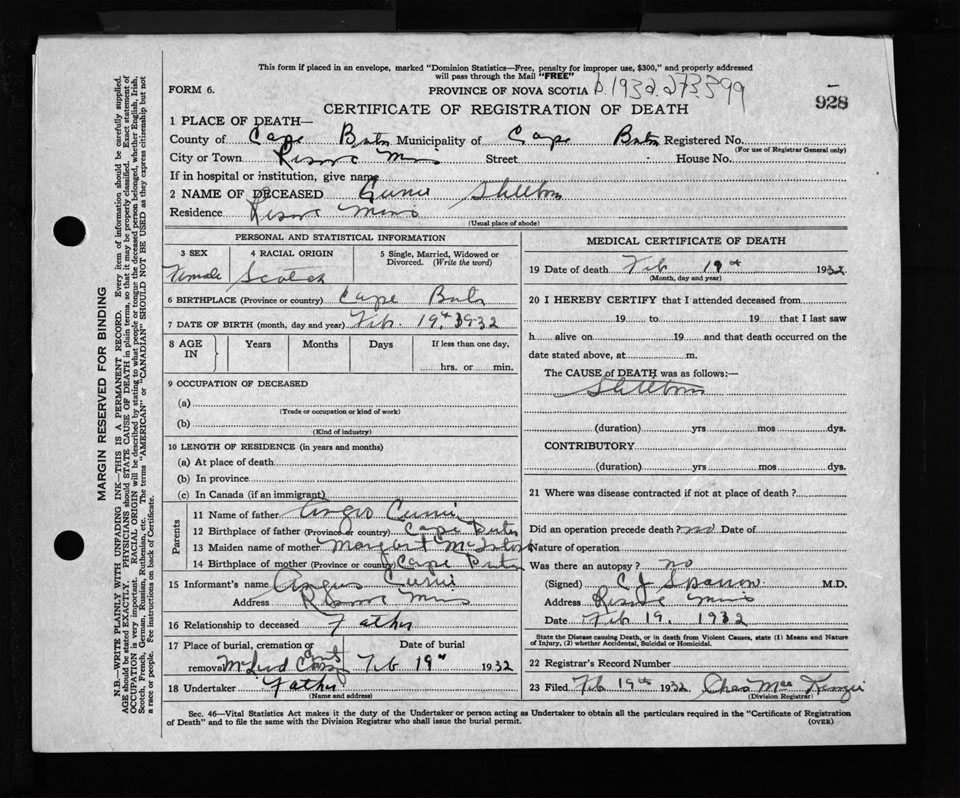 This form if placed in an envelope, marked "Dominion Statistics—Free, penalty for improper use, $300," and properly addressed
will pass through the Mail "FREE"
FORM 6. PROVINCE OF NOVA SCOTIA D.1932.273399
928
CERTIFICATE OF REGISTRATION OF DEATH
1 PLACE OF DEATH—
County of Cape Breton Municipality of Cape Breton Registered No.
(For use of Registrar General only)
City or Town Reserve Mines Street House No.
If in hospital or institution, give name
2 NAME OF DECEASED Currie Stillborn
Residence Reserve Mines
(Usual place of abode)
PERSONAL AND STATISTICAL INFORMATION
3 SEX 4 RACIAL ORIGIN 5 Single, Married, Widowed or Divorced. (Write the word)
Female Scotch
6 BIRTHPLACE (Province or country) Cape Breton
7 DATE OF BIRTH (month, day and year) Feb. 19th 1932
8 AGE IN Years Months Days If less than one day,
hrs. or min.
9 OCCUPATION OF DECEASED
(a)
(Trade or occupation or kind of work)
(b)
(Kind of industry)
10 LENGTH OF RESIDENCE (in years and months)
(a) At place of death
(b) In province
(c) In Canada (if an immigrant)
Parents
11 Name of father Angus Currie
12 Birthplace of father (Province or country) Cape Breton
13 Maiden name of mother Margaret McIntosh
14 Birthplace of mother (Province or country) Cape Breton
15 Informant's name Angus Currie
Address Reserve Mines
16 Relationship to deceased Father
17 Place of burial, cremation or removal Date of burial
McLeod Feb 19th 1932
18 Undertaker Father
(Name and address)
MEDICAL CERTIFICATE OF DEATH
19 Date of death Feb 19th 1932
(Month, day and year)
20 I HEREBY CERTIFY that I attended deceased from
19 to 19 that I last saw
h alive on 19 and that death occurred on the
date stated above, at m.
The CAUSE of DEATH was as follows:—
Stillborn
(duration) yrs mos dys.
CONTRIBUTORY
(duration) yrs mos dys.
21 Where was disease contracted if not at place of death?
Did an operation precede death? no Date of
Nature of operation
Was there an autopsy? no
(Signed) C J Sparrow M.D.
Address Reserve Mines
Date Feb 19. 1932
State the Disease causing Death, or in death from Violent Causes, state (1) Means and Nature
of Injury, (2) whether Accidental, Suicidal or Homicidal.
22 Registrar's Record Number
23 Filed Feb 19th 1932 Chas MacKenzie
(Division Registrar)
Sec. 46—Vital Statistics Act makes it the duty of the Undertaker or person acting as Undertaker to obtain all the particulars required in the "Certificate of Registration
of Death" and to file the same with the Division Registrar who shall issue the burial permit. (OVER)
MARGIN RESERVED FOR BINDING
N.B.—WRITE PLAINLY WITH UNFADING INK—THIS IS A PERMANENT RECORD. Every item of information should be carefully supplied.
AGE should be stated EXACTLY. PHYSICIANS should STATE CAUSE OF DEATH in plain terms, so that it may be properly classified. Exact statement of
OCCUPATION is very important. RACIAL ORIGIN will be described by stating to what people or tongue the deceased person belonged, whether English, Irish,
Scotch, French, German, Russian, Ruthenian, etc. The terms "AMERICAN" or "CANADIAN" SHOULD NOT BE USED as they express citizenship but not
a race or people. See instructions on back of Certificate.